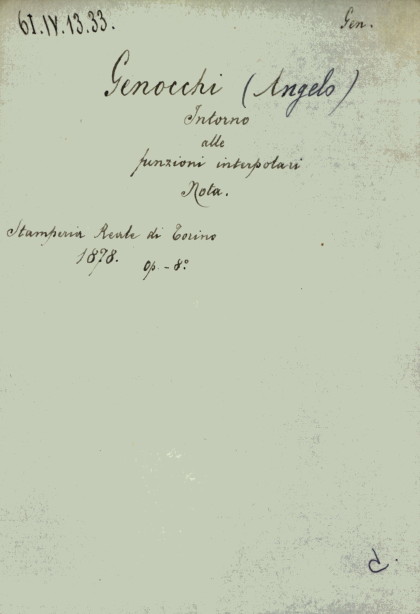 61.IV.13.33.
Gen.
Genocchi (Angelo)
Intorno
alle
funzioni interpolari
Nota.
Stamperia Reale di Torino
1878. Op. - 8º